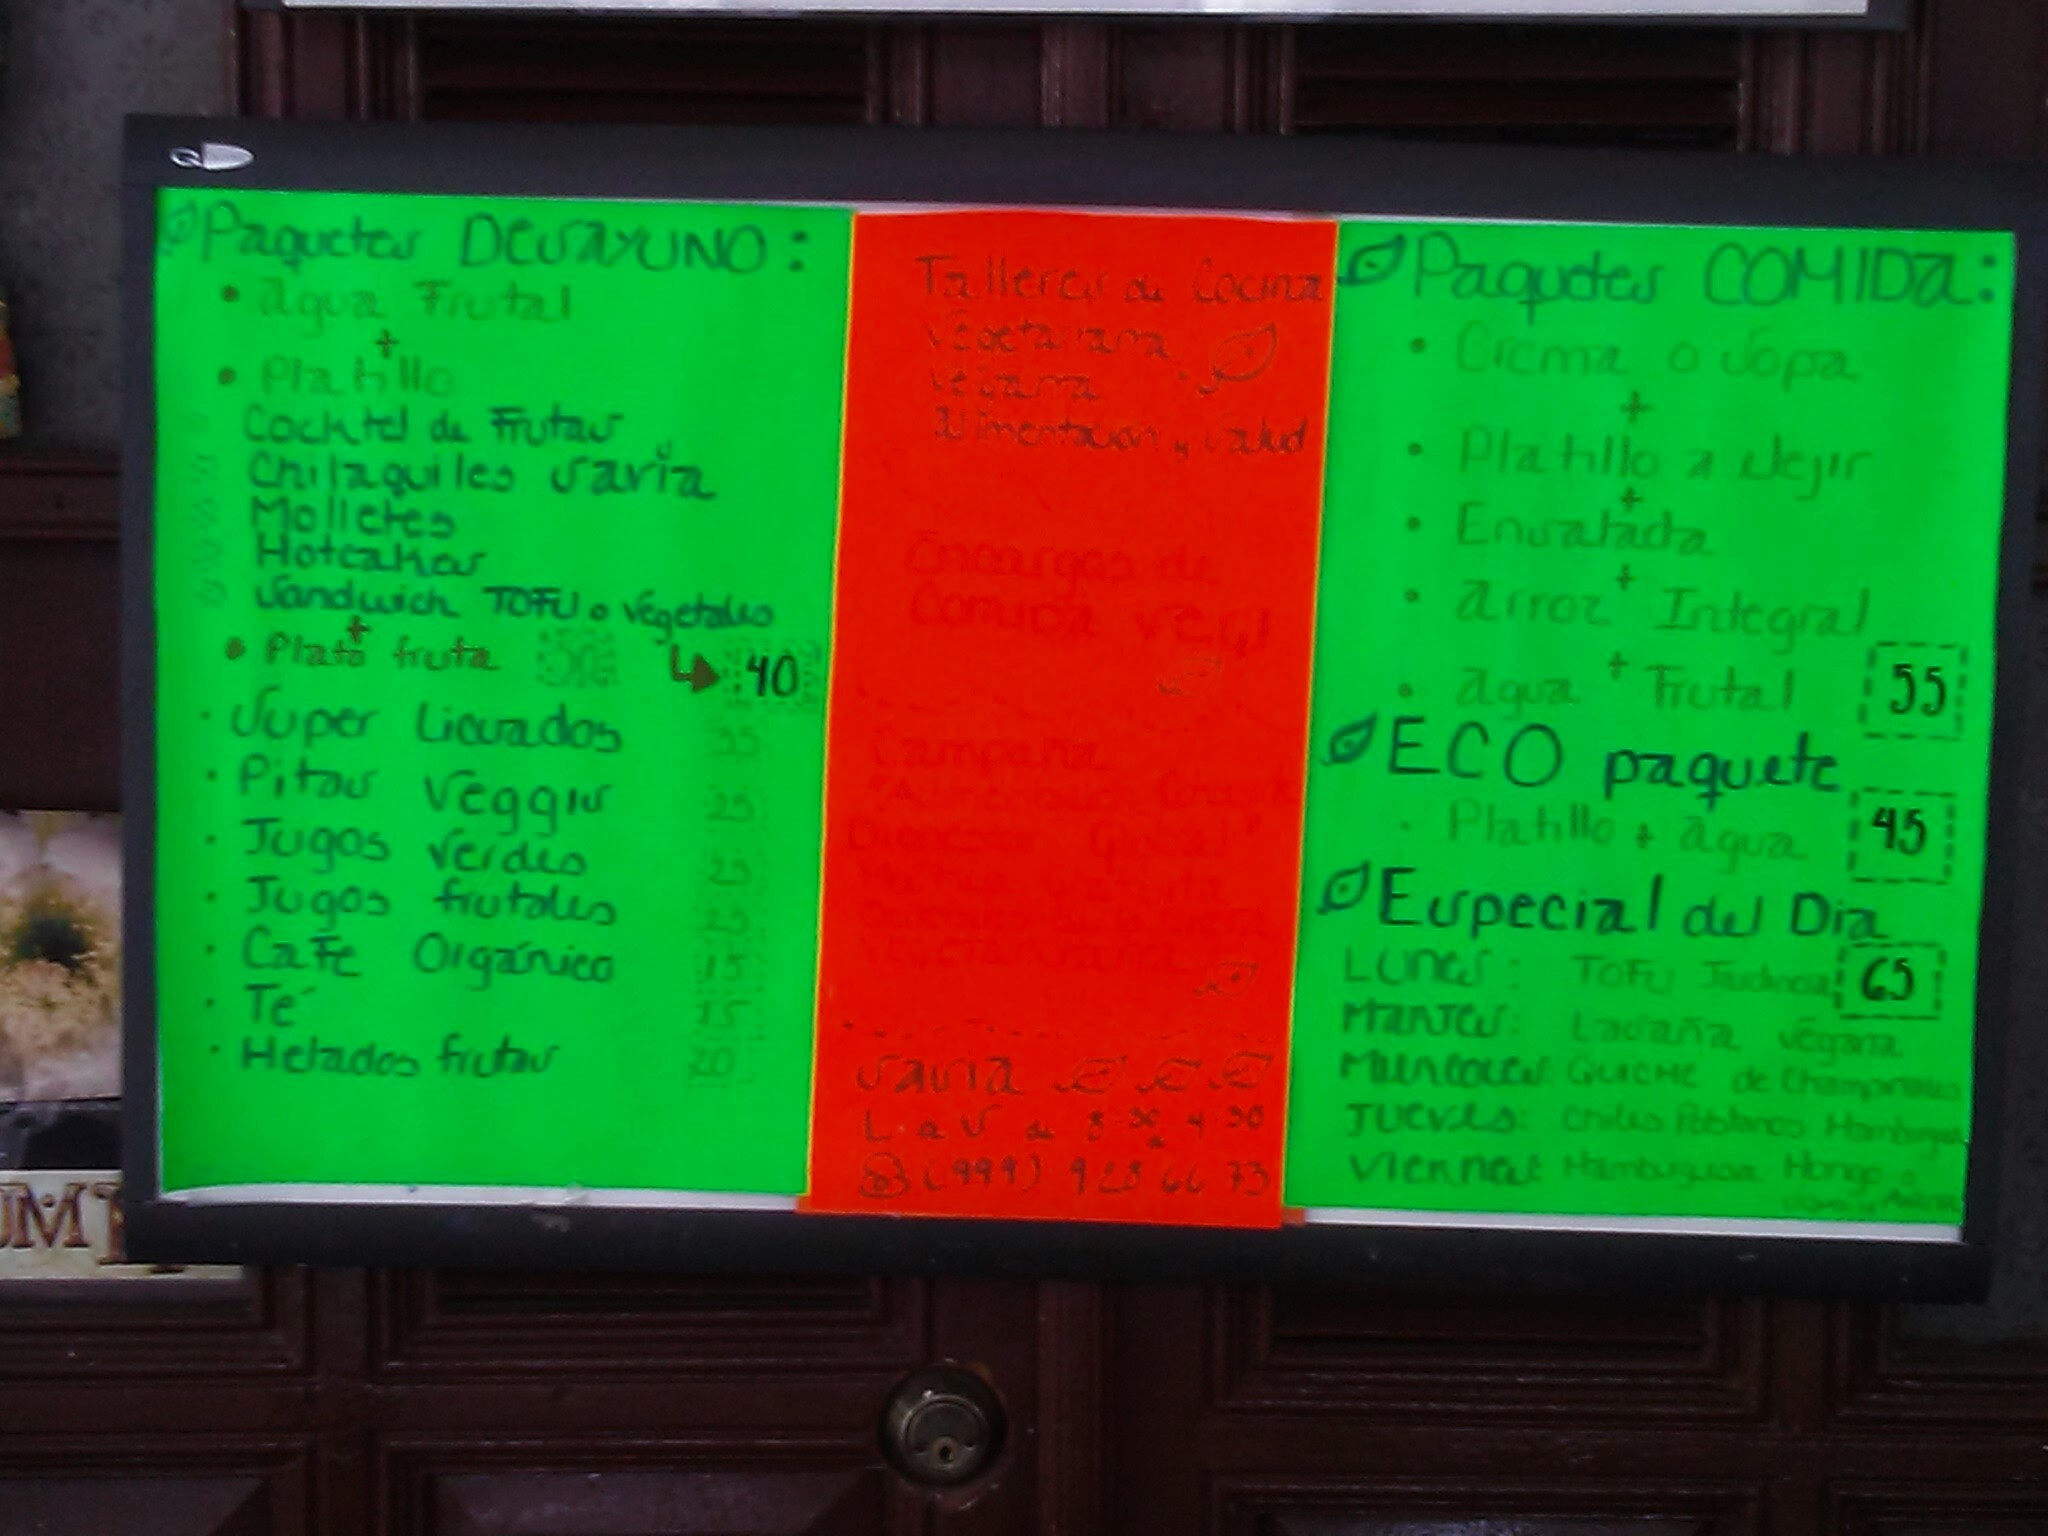 Paquetes DESAYUNO:
• agua Frutal
+
• Platillo
Cocktel de Frutas
Chilaquiles savia
Molletes
Hotcakes
Sandwich TOFU o vegetales
+
• Plato fruta 50 40
· Super Licuados 35
· Pitas Veggis 25
· Jugos verdes 25
· Jugos frutales 25
· Café Orgánico 15
· Té 15
· Helados frutas 20
Talleres de Cocina
Vegetariana
Vegana
Alimentacion y salud
Encargos de
Comida
Campaña
Savia
L a V de 8:30 a 4:30
(999) 928 66 73
Paquetes COMIDA:
• Crema o Sopa
+
• Platillo a elejir
+
• Ensalada
+
• arroz Integral
+
• agua Frutal 55
ECO paquete
· Platillo + agua 45
Especial del Dia
LUNES: TOFU 65
MARTES: Lasaña vegana
Miercoles: QUICHE de Champiñones
Jueves: chiles Poblanos
Viernes: Hamburguesa Hongo o
UM